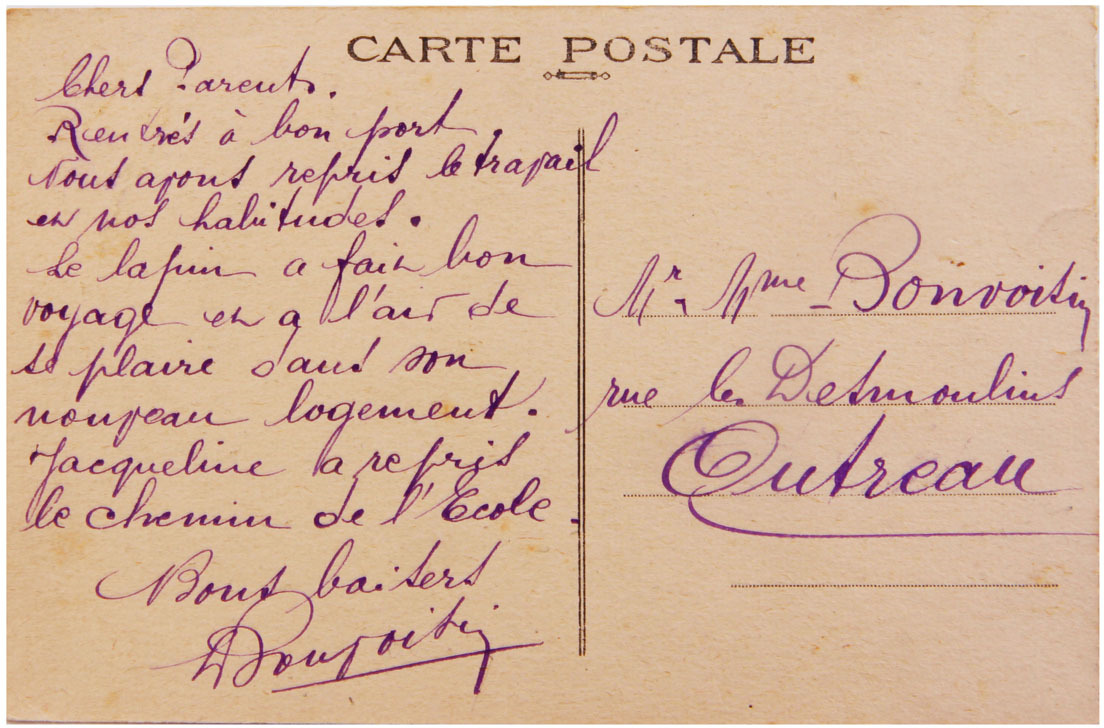 CARTE POSTALE
Chers Parents.
Rentrés à bon port.
Nous avons repris le travail
et nos habitudes.
Le lapin a fait bon
voyage et a l'air de
se plaire dans son
nouveau logement.
Jacqueline a repris
le chemin de l'Ecole.
Bons baisers
Bonvoisin
Mr Mme Bonvoisin
rue les Desmoulins
Outreau